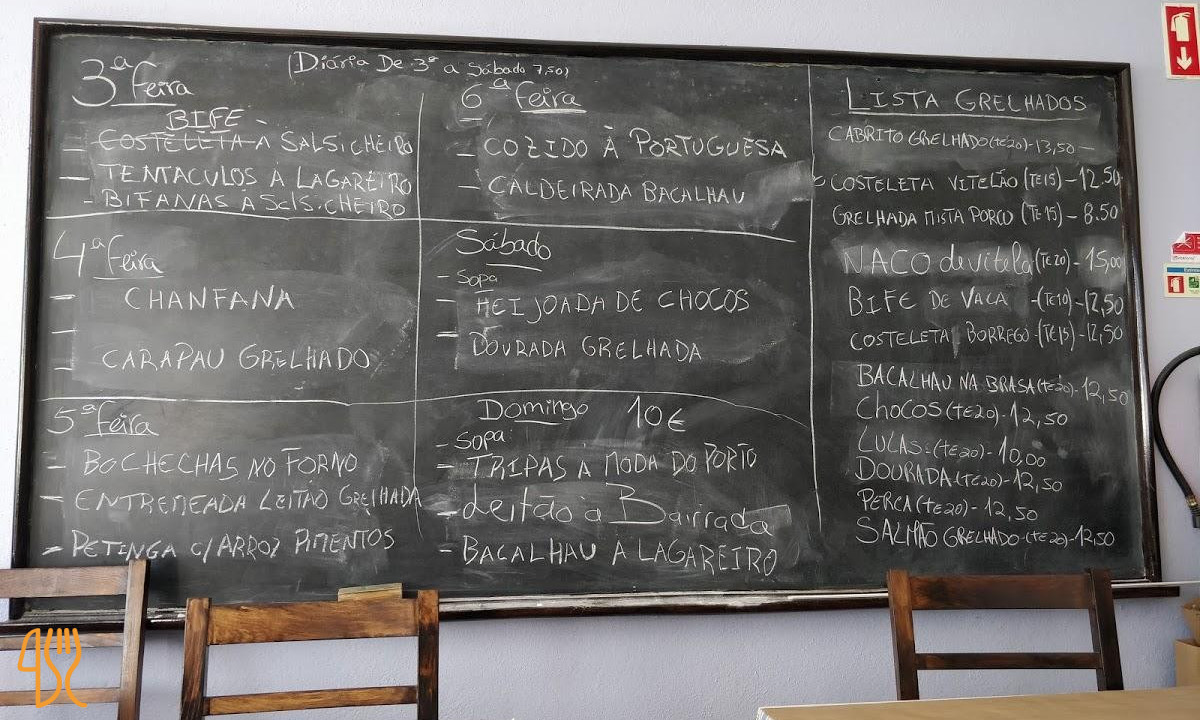 (Diária De 3ª a Sábado 7,50)
3ª feira
BIFE -
- COSTELETA A SALSICHEIRO
- TENTACULOS A LAGAREIRO
- BIFANAS A SALSICHEIRO
4ª feira
- CHANFANA
-
- CARAPAU GRELHADO
5ª feira
- BOCHECHAS NO FORNO
- ENTREMEADA LEITÃO GRELHADA
- PETINGA C/ARROZ PIMENTOS
6ª feira
- COZIDO À PORTUGUESA
- CALDEIRADA BACALHAU
Sábado
- Sopa
- FEIJOADA DE CHOCOS
- DOURADA GRELHADA
Domingo 10€
- Sopa:
- TRIPAS A MODA DO PORTO
- Leitão à Bairrada
- BACALHAU A LAGAREIRO
LISTA GRELHADOS
CABRITO GRELHADO (te20) - 13,50 -
COSTELETA VITELÃO (TE15) - 12.50
GRELHADA MISTA PORCO (TE 15) - 8.50
NACO de vitela (TE 20) - 15,00
BIFE DE VACA - (TE10) - 12,50
COSTELETA BORREGO - (TE15) - 12,50
BACALHAU NA BRASA (te20) - 12,50
CHOCOS (te20) - 12,50
LULAS: (te20) - 10,00
DOURADA (te20) - 12,50
PERCA (te20) - 12,50
SALMÃO GRELHADO - (te20) - 12,50